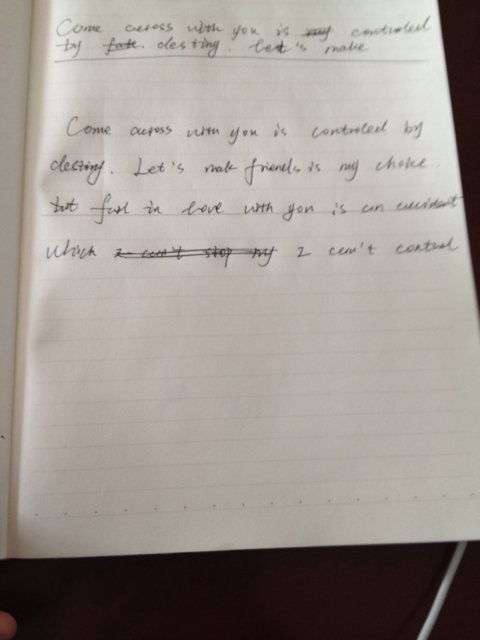 Come across with you is my controled
by fate destiny. Let's make
Come across with you is controled by
destiny. Let's mak friends is my choice.
but farl in love with you is an accident
which I can't stop my I can't control